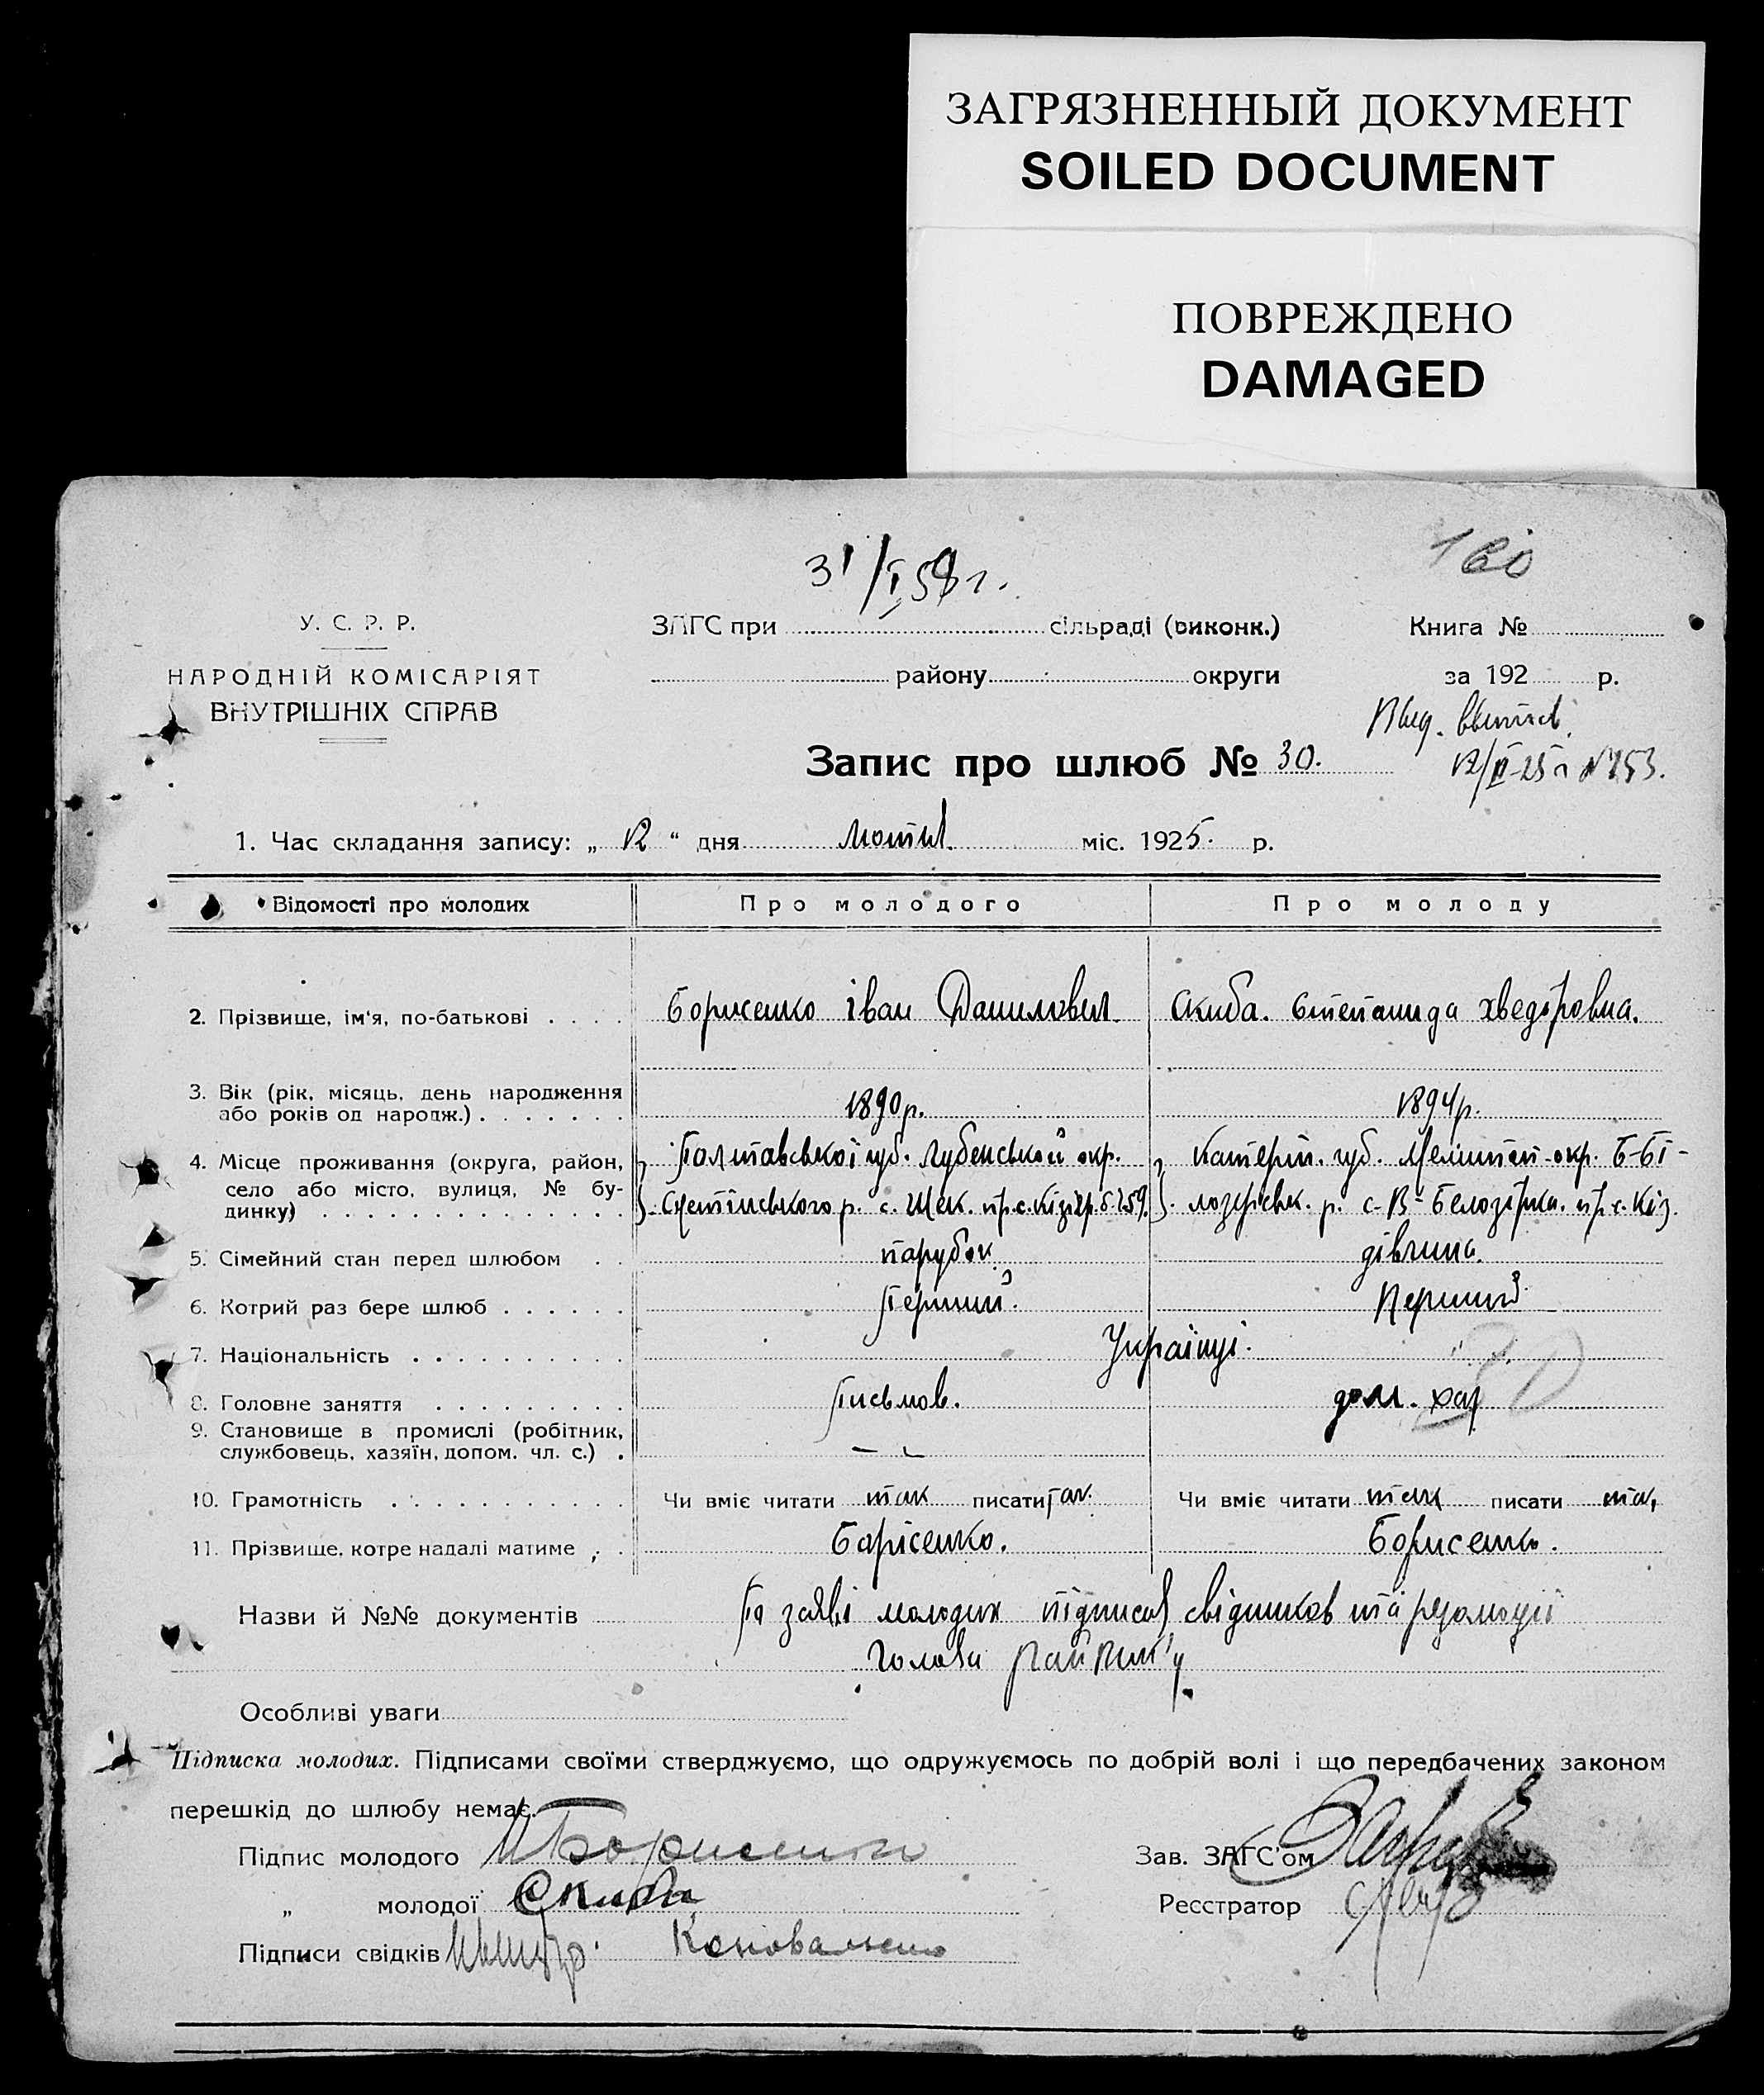 ЗАГРЯЗНЕННЫЙ ДОКУМЕНТ
SOILED DOCUMENT
ПОВРЕЖДЕНО
DAMAGED
31/I 59 г.
У. С. Р. Р.
НАРОДНІЙ КОМІСАРІЯТ
ВНУТРІШНІХ СПРАВ
ЗАГС при сільраді (виконк.)
району округи
Книга №
за 192 р.
Запис про шлюб № 30.
12/II-25 г №
1. Час складання запису: „ 12 “ дня Лютня міс. 1925. р.
Відомості про молодих Про молодого Про молоду
2. Прізвище, ім'я, по-батькові Борисенко іван Данилович Скиба. Степанида хведоровна.
3. Вік (рік, місяць, день народження
або років од народж.) 1890 р. 1894 р.
4. Місце проживання (округа, район, Полтавської губ. Лубенської окр. Катерин. губ. Меліт окр. Б-Бі-
село або місто, вулиця, № бу-
динку) р. с. лозерськ. р. с. В- Белозірка.
5. Сімейний стан перед шлюбом парубок. дівчина.
6. Котрий раз бере шлюб Перший. Перший.
7. Національність Українці.
8. Головне заняття Письмов. дом. хаз
9. Становище в промислі (робітник,
службовець, хазяїн, допом. чл. с.) — —
10. Грамотність Чи вміє читати так писати так. Чи вміє читати так писати так
11. Прізвище, котре надалі матиме Борісенко. Борисенко.
Назви й №№ документів По заяві молодих підписав свідчиков та резолюції
Голови Райвик'у
Особливі уваги
Підписка молодих. Підписами своїми стверджуємо, що одружуємось по добрій волі і що передбачених законом
перешкід до шлюбу немає.
Підпис молодого И Борисенко Зав. ЗАГС'ом
„ молодої Скиба Реєстратор
Підписи свідків Коноваленко